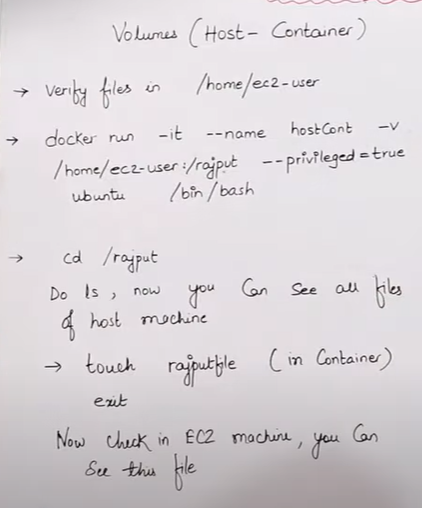 Volumes (Host - Container)
→ Verify files in /home/ec2-user
→ docker run -it --name hostCont -v
/home/ec2-user:/rajput --privileged=true
ubuntu /bin/bash
→ cd /rajput
Do ls, now you Can See all files
of host machine
→ touch rajputfile (in Container)
exit
Now check in EC2 machine, you Can
See this file